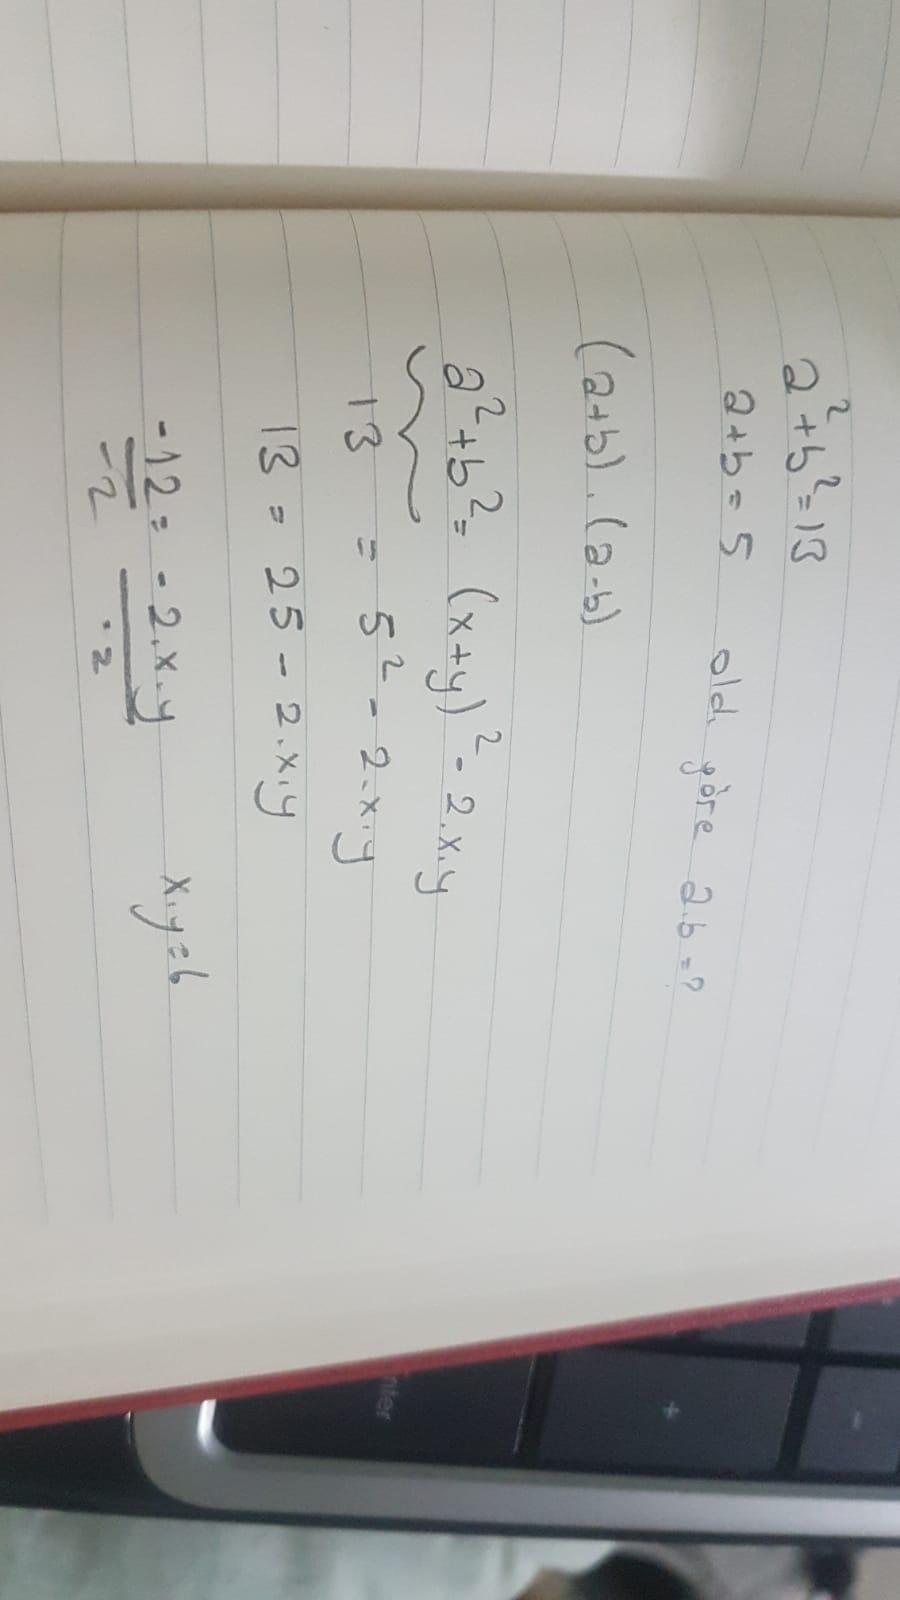 a²+b²=13
a+b=5 old. göre a.b=?
(a+b).(a-b)
a²+b²= (x+y)²-2.x.y
13 = 5²-2.x.y
13 = 25-2.x.y
-12 = -2.x.y x.y=6
-2 -2
nter
+
-